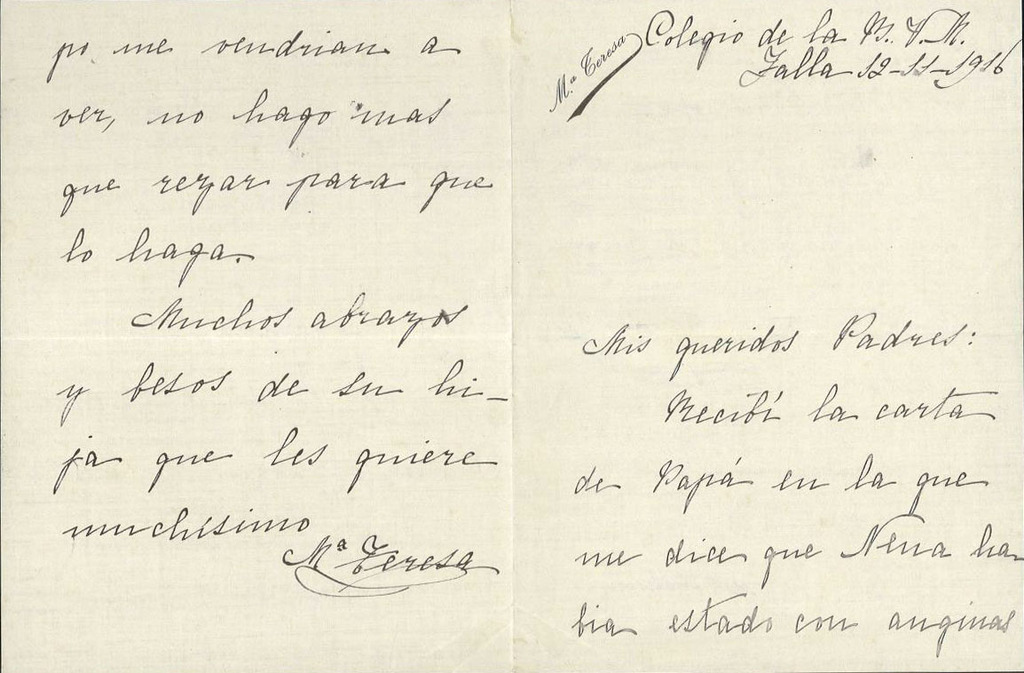 Mª Teresa
Colegio de la B. V. M.
Zalla 12-11-1916
Mis queridos Padres:
Recibí la carta
de Papá en la que
me dice que Nena ha
bia estado con anginas
po me vendrian a
ver, no hago mas
que rezar para que
lo haga.
Muchos abrazos
y besos de su hi-
ja que les quiere
muchísimo
Mª Teresa